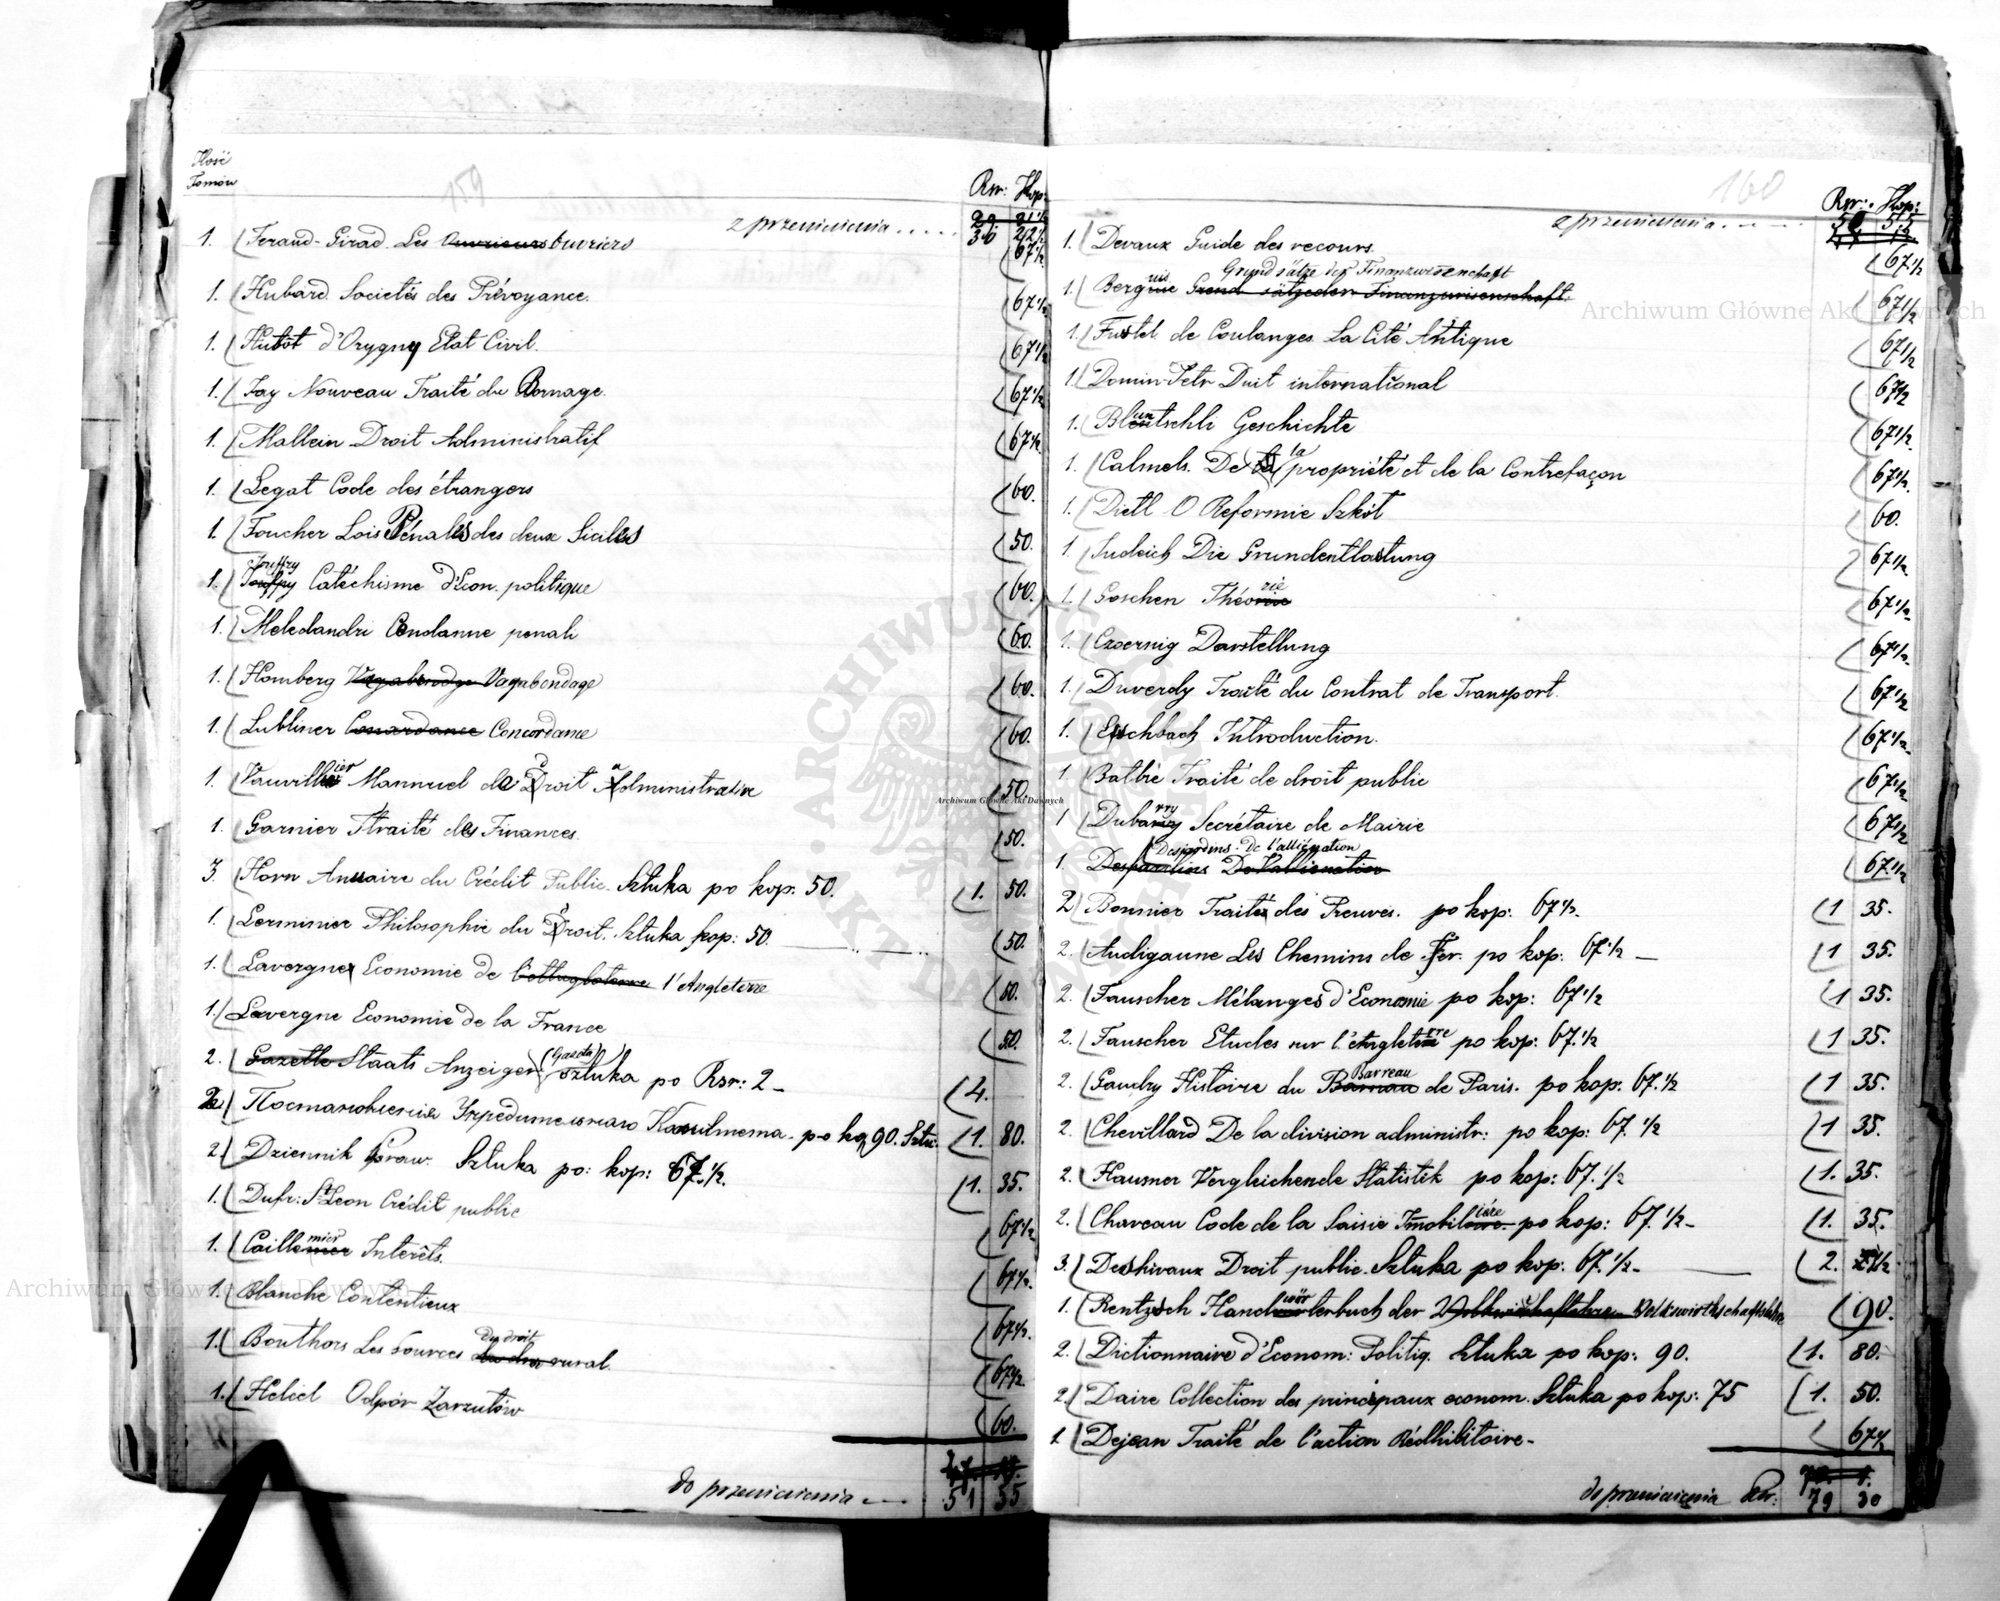 159
Ilość
Tomów
Rsr: Kop:
z przeniesienia . . . . .
1. Feraud-Girad. Les Ouvriers 67½
1. Hubard. Societés des Prévoyance. 67½
1. Hutôt d'Orygny Etat Civil. 67½
1. Jay Nouveau Traité du Bornage. 67½
1. Mallein Droit Administratif 67½
1. Legat Code des étrangers 60.
1. Foucher Lois Pénales des deux Siciles 50.
1. Jouffry Catéchisme d'Econ. politique 60.
1. Meledandri Condanne penali 60.
1. Homberg Vagabondage Vagabondage 60.
1. Lubliner Concordance Concordance 60.
1. Vauvillier Mannuel de Droit administrative 50.
1. Garnier Traité des Finances. 50.
3. Horn Annuaire du Crédit Public. Sztuka po kop. 50. 1. 50.
1. Lerminier Philosophie du Droit. Sztuka kop: 50. 50.
1. Lavergne Economie de l'Angleterre 50.
1. Lavergne Economie de la France 50.
2. Gazette Staats Anzeiger (Gazeta) sztuka po Rsr: 2 4.
2 Постановленія Учредительнаго Комитета. po kop 90. Sztu. 1. 80.
2. Dziennik Praw. Sztuka po: kop: 67.½. 1. 35.
1. Dufr: St Leon Crédit public 67½
1. Caillemier Interêts. 67½.
1. Blanche Contentieux 67½
1. Bouthors Les Sources du droit rural. 67½.
1. Heliel Odpór Zarzutów 60.
do przeniesienia 51 55
160
Rsr: Kop:
z przeniesienia . . . 50 55
1. Devaux Guide des recours. 67½
Grundsätze der Finanzwissenschaft
1. Bergius Grund sätze der Finanzwissenschaft. 67½
1. Fustel de Coulanges La Cité Antique 67½
1. Domin-Petr Duit international 67½
1. Bluntschli Geschichte 67½.
1. Calmels. De la propriété et de la Contrefaçon 67½.
1. Dietl O Reformie Szkół 60.
1. Judeich Die Grundentlastung 67½.
1. Goschen Théorie 67½.
1. Czoernig Darstellung 67½.
1. Duverdy Traité du Contrat de Transport. 67½
1. Eschbach Introduction. 67½.
1. Batbie Traité de droit public 67½
1 Dubarry Secrétaire de Mairie 67½
Desjardins. De l'alliénation
1. 67½
2 Bonnier Traité des Preuves. po kop: 67½. 1 35.
2. Audigaune Les Chemins de Fer. po kop: 67½ 1 35.
2. Fauscher Mélanges d'Economie po kop: 67½ 1 35.
2. Fauscher Etudes sur l'Angleterre po kop: 67.½ 1 35.
2. Gaudry Histoire du Barreau de Paris. po kop: 67.½ 1 35.
2. Chevillard De la division administr: po kop: 67.½ 1 35.
2. Hausner Vergleichende Statistik po kop: 67.½ 1. 35.
2. Chaveau Code de la Saisie Imobilière po kop: 67.½ 1. 35.
3. Deshivaux Droit public. Sztuka po kop: 67.½ 2.
1. Rentzsch Handwörterbuch der Volkswirthschaftslehre 90.
2. Dictionnaire d'Econom: Politiq. Sztuka po kop: 90. 1. 80.
2. Daire Collection des principaux econom. Sztuka po kop: 75 1. 50.
1 Dejean Traité de l'action Rédhibitoire 67½
do przeniesienia Rsr: 79 30
ARCHIWUM GŁÓWNE AKT DAWNYCH
Archiwum Główne Akt Dawnych
Archiwum Główne Akt Dawnych
Archiwum Główne Akt Dawnych